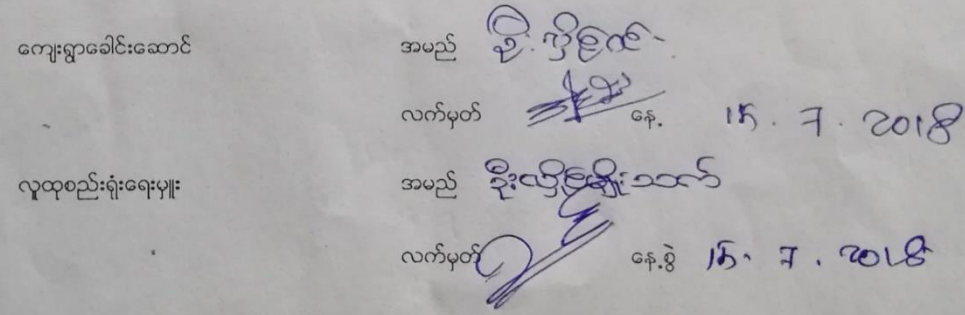 ကျေးရွာခေါင်းဆောင် အမည် ဦး
လက်မှတ် နေ့. 15 . 7 . 2018
လူထုစည်းရုံးရေးမှူး အမည် ဦး
လက်မှတ် နေ့.စွဲ 15 . 7 . 2018